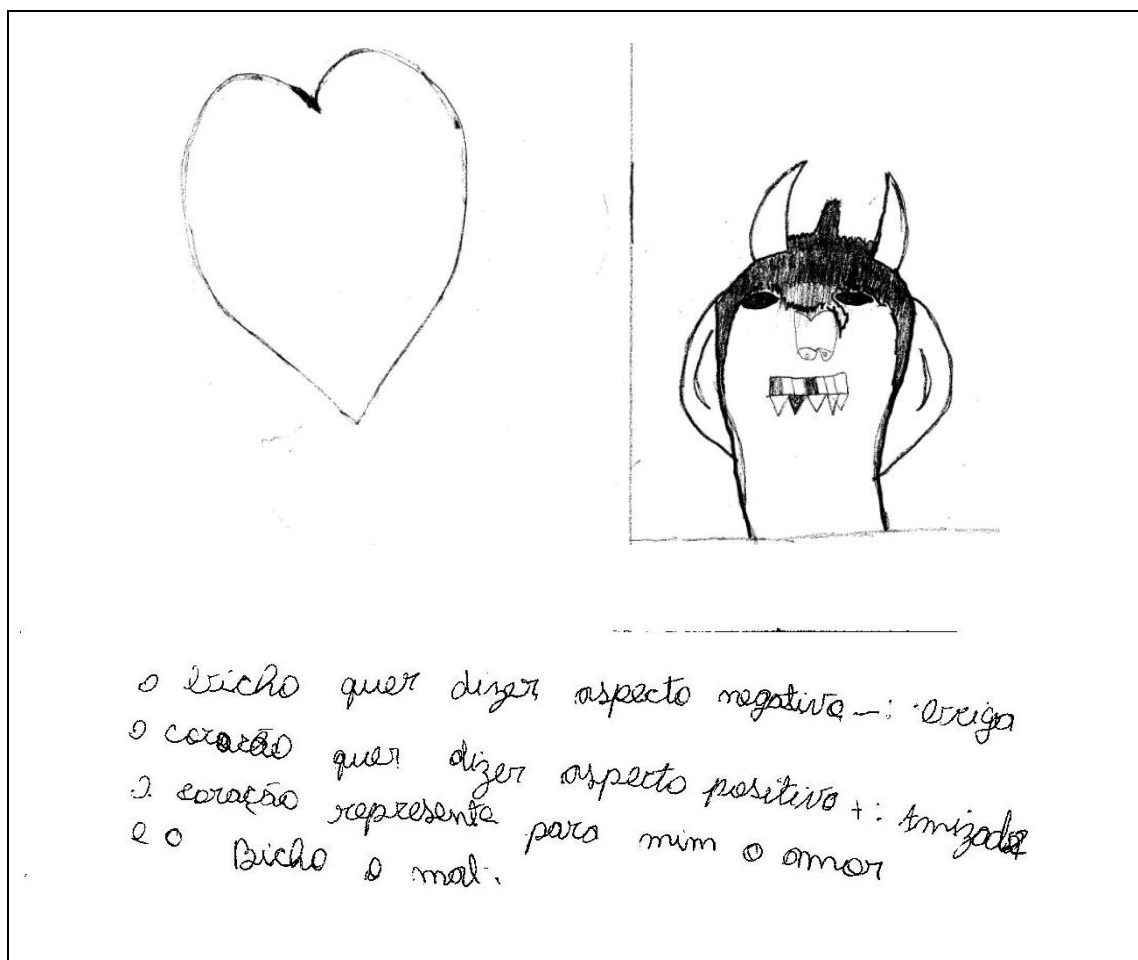 o bicho quer dizer aspecto negativo -: briga
o coração quer dizer aspecto positivo +: Amizade
o coração representa para mim o amor
e o Bicho o mal.